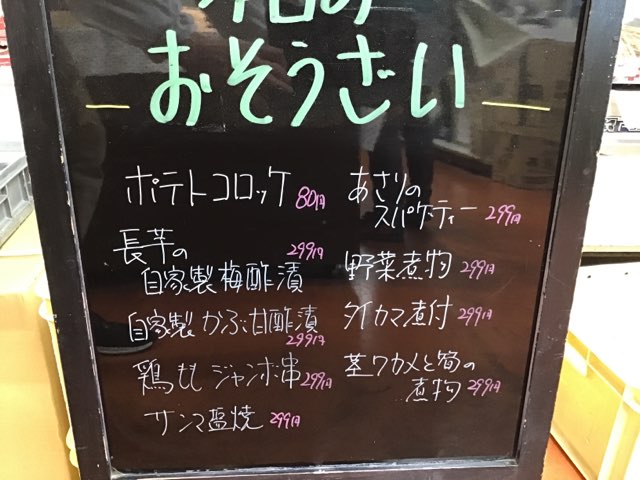 今日の
おそうざい
ポテトコロッケ 80円
長芋の 299円
自家製梅酢漬
自家製かぶ甘酢漬
299円
鶏もも ジャンボ串 299円
サンマ塩焼 299円
あさりの
スパゲッティー 299円
野菜煮物 299円
タイカマ煮付 299円
茎ワカメと筍の
煮物 299円